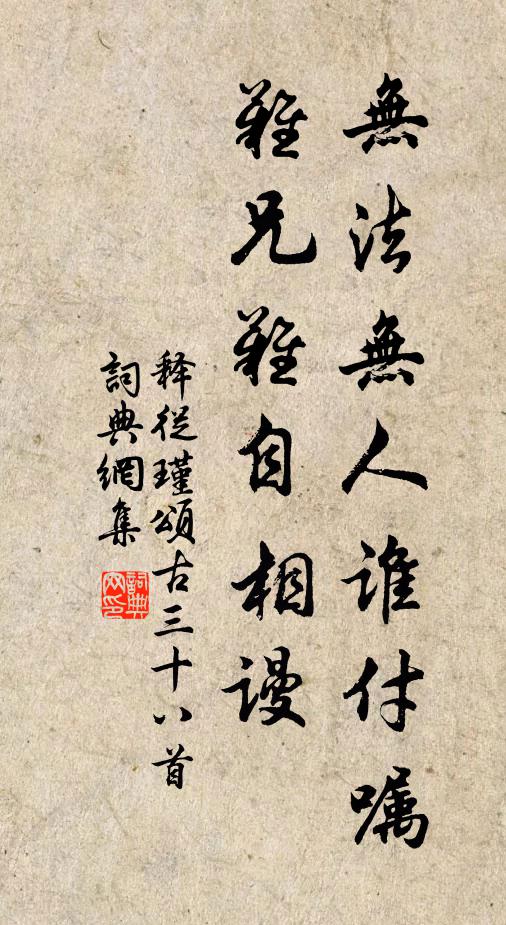 無法無人誰付嘱
難兄難自相謾
释從瑾頌古三十八首
詞典網集
詞典网印